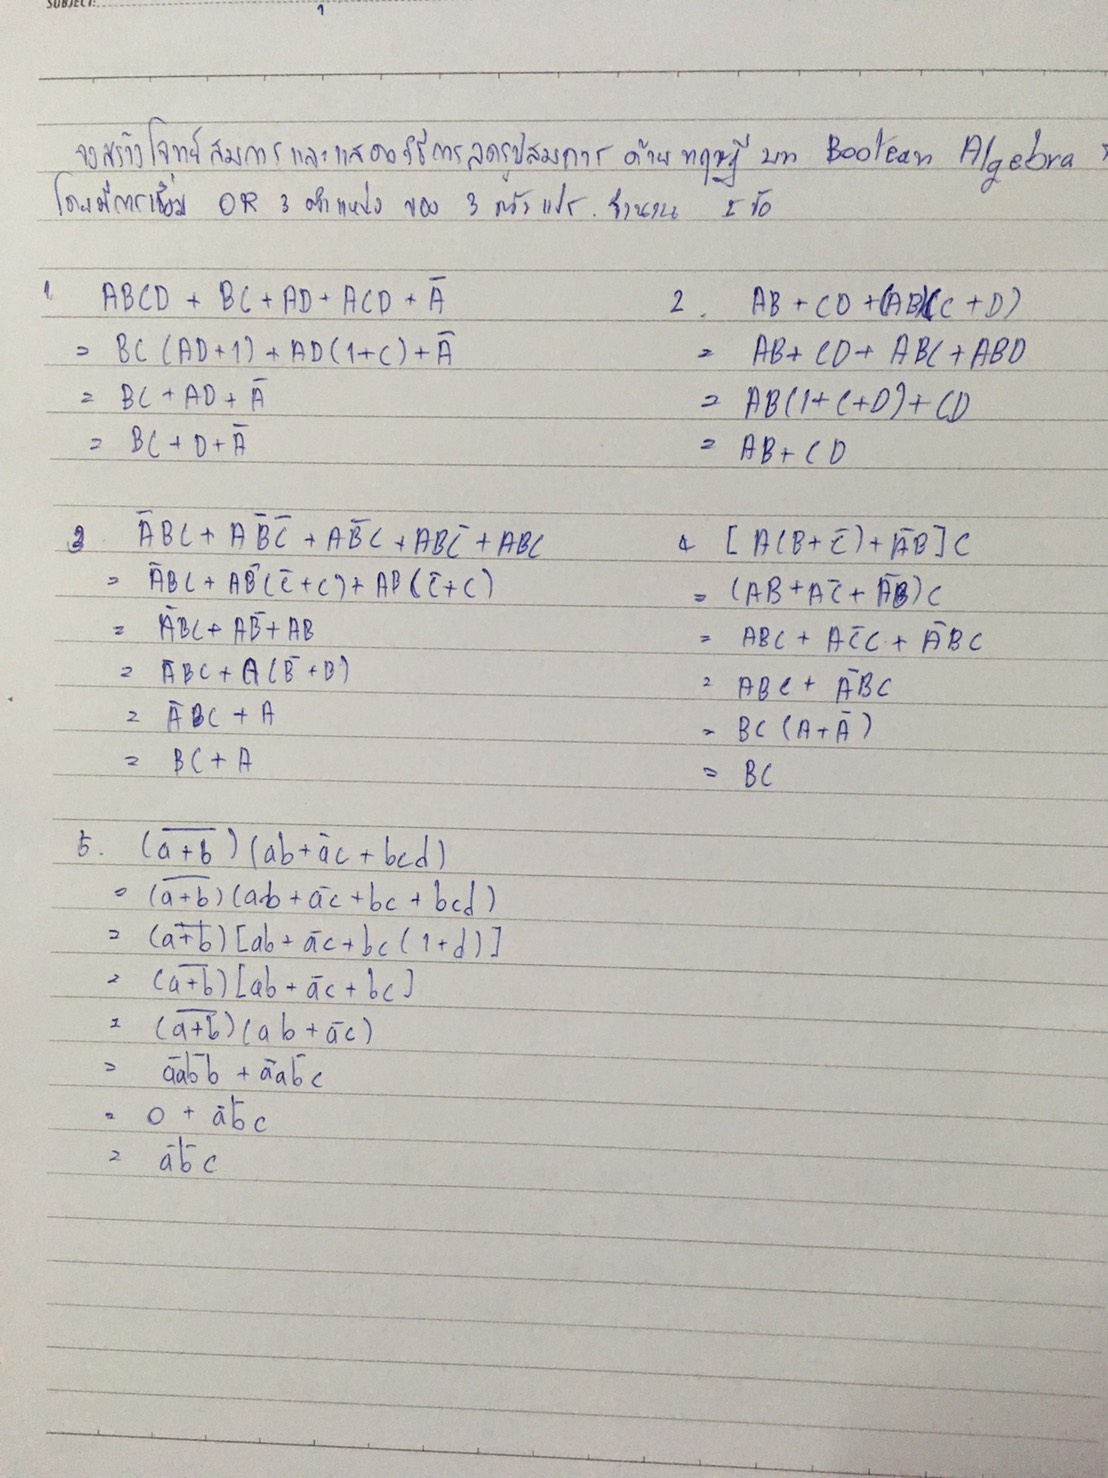 SUBJECT:
จงสร้างโจทย์สมการและแสดงวิธีการลดรูปสมการ ด้วยทฤษฎี บท Boolean Algebra
โดยมีการเชื่อม OR 3 ตำแหน่ง ของ 3 ตัวแปร. จำนวน 5 ข้อ
1. ABCD + BC + AD + ACD + A̅
= BC (AD+1) + AD (1+C) + A̅
= BC + AD + A̅
= BC + D + A̅
2. AB + CD + (AB)(C + D)
= AB + CD + ABC + ABD
= AB(1+C+D) + CD
= AB + CD
3 A̅BC + AB̅C̅ + AB̅C + ABC̅ + ABC
= A̅BC + AB̅(C̅+C) + AB(C̅+C)
= A̅BC + AB̅ + AB
= A̅BC + A(B̅+B)
= A̅BC + A
= BC + A
4 [A(B+C̅) + A̅B]C
= (AB + AC̅ + A̅B)C
= ABC + AC̅C + A̅BC
= ABC + A̅BC
= BC (A+A̅)
= BC
5. (a̅+̅b̅)(ab + a̅c + bcd)
= (a̅+̅b̅)(ab + a̅c + bc + bcd)
= (a̅+̅b̅)[ab + a̅c + bc(1+d)]
= (a̅+̅b̅)[ab + a̅c + bc]
= (a̅+̅b̅)(ab + a̅c)
= a̅ab̅b + a̅ab̅c
= 0 + a̅b̅c
= a̅b̅c